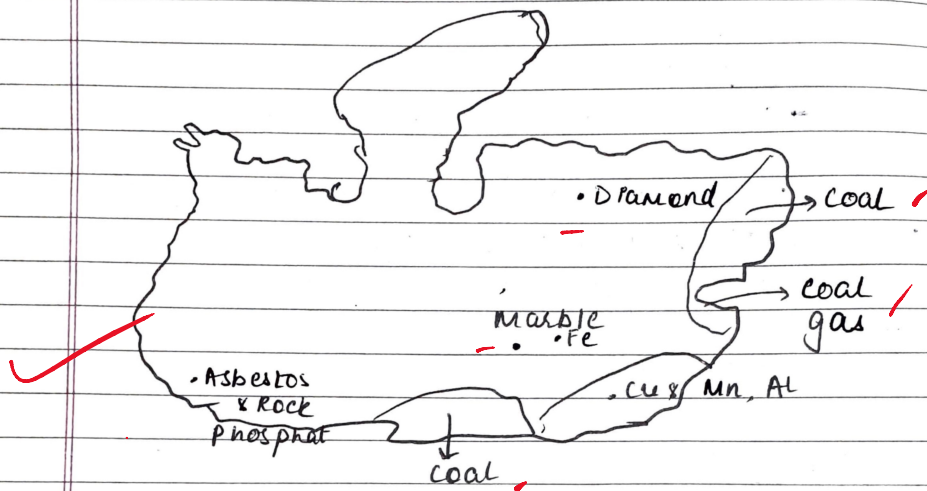 Diamond
coal
coal
gas
Marble
Fe
Asbestos
& Rock
Phosphat
Cu & Mn, Al
coal